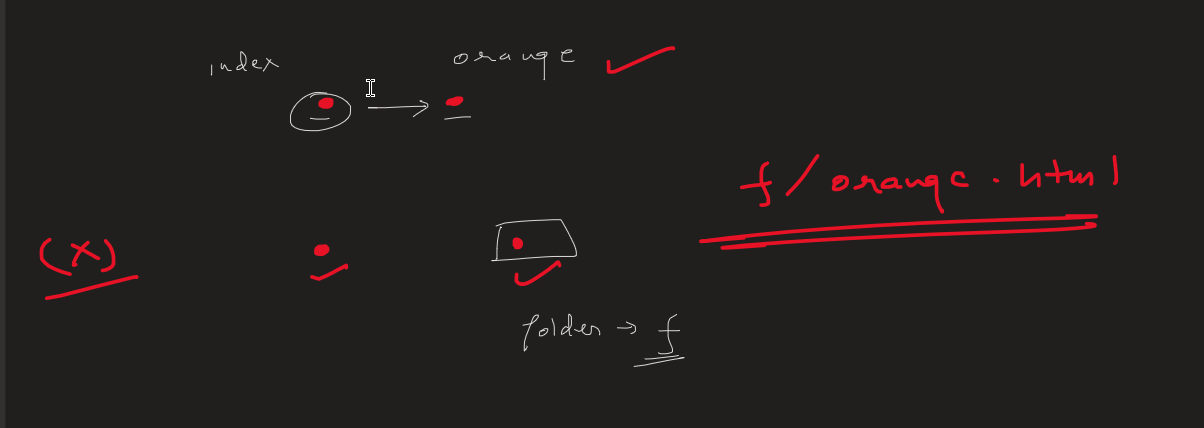 index
orange
f/orange.html
(x)
folder → f